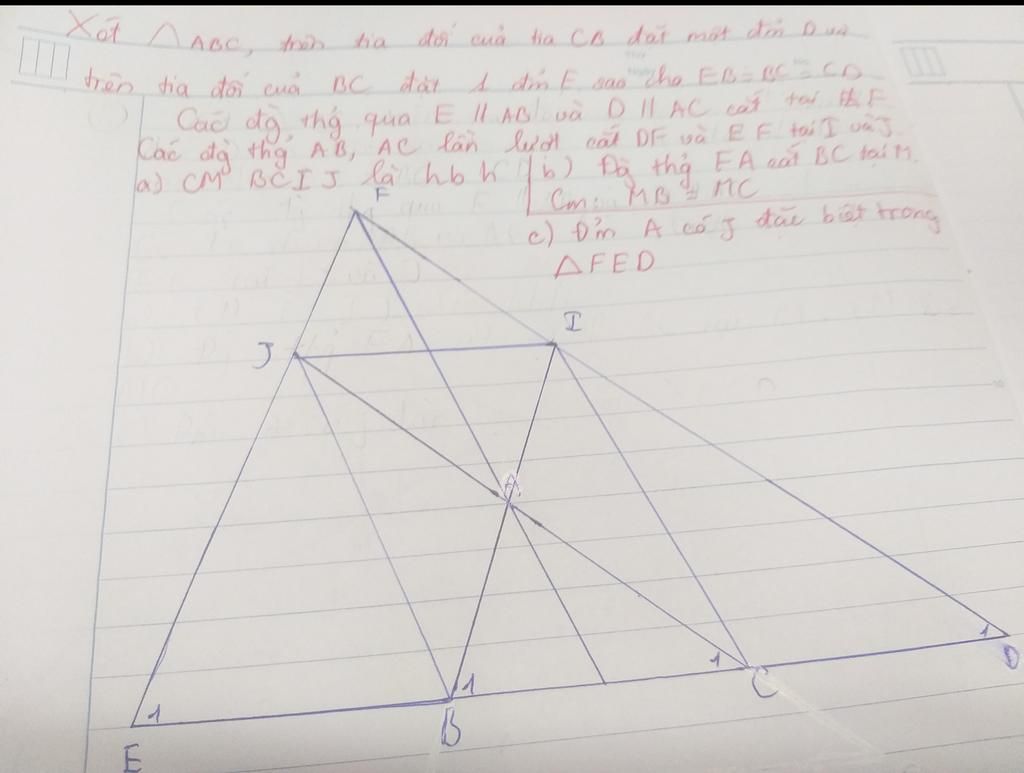 Xét △ABC, trên tia đối của tia CB đặt một đm D và
trên tia đối của BC đặt 1 đm E sao cho EB = BC = CD
Các đg thg qua E // AB và D // AC cắt tại F
Các đg thg AB, AC lần lượt cắt DF và EF tại I và J
a) CM BCIJ là hbh
b) Đg thg FA cắt BC tại M.
Cm: MB = MC
c) Đm A có J đặc biệt trong
△FED
F
J
I
A
1
1
1
1
E
B
C
D